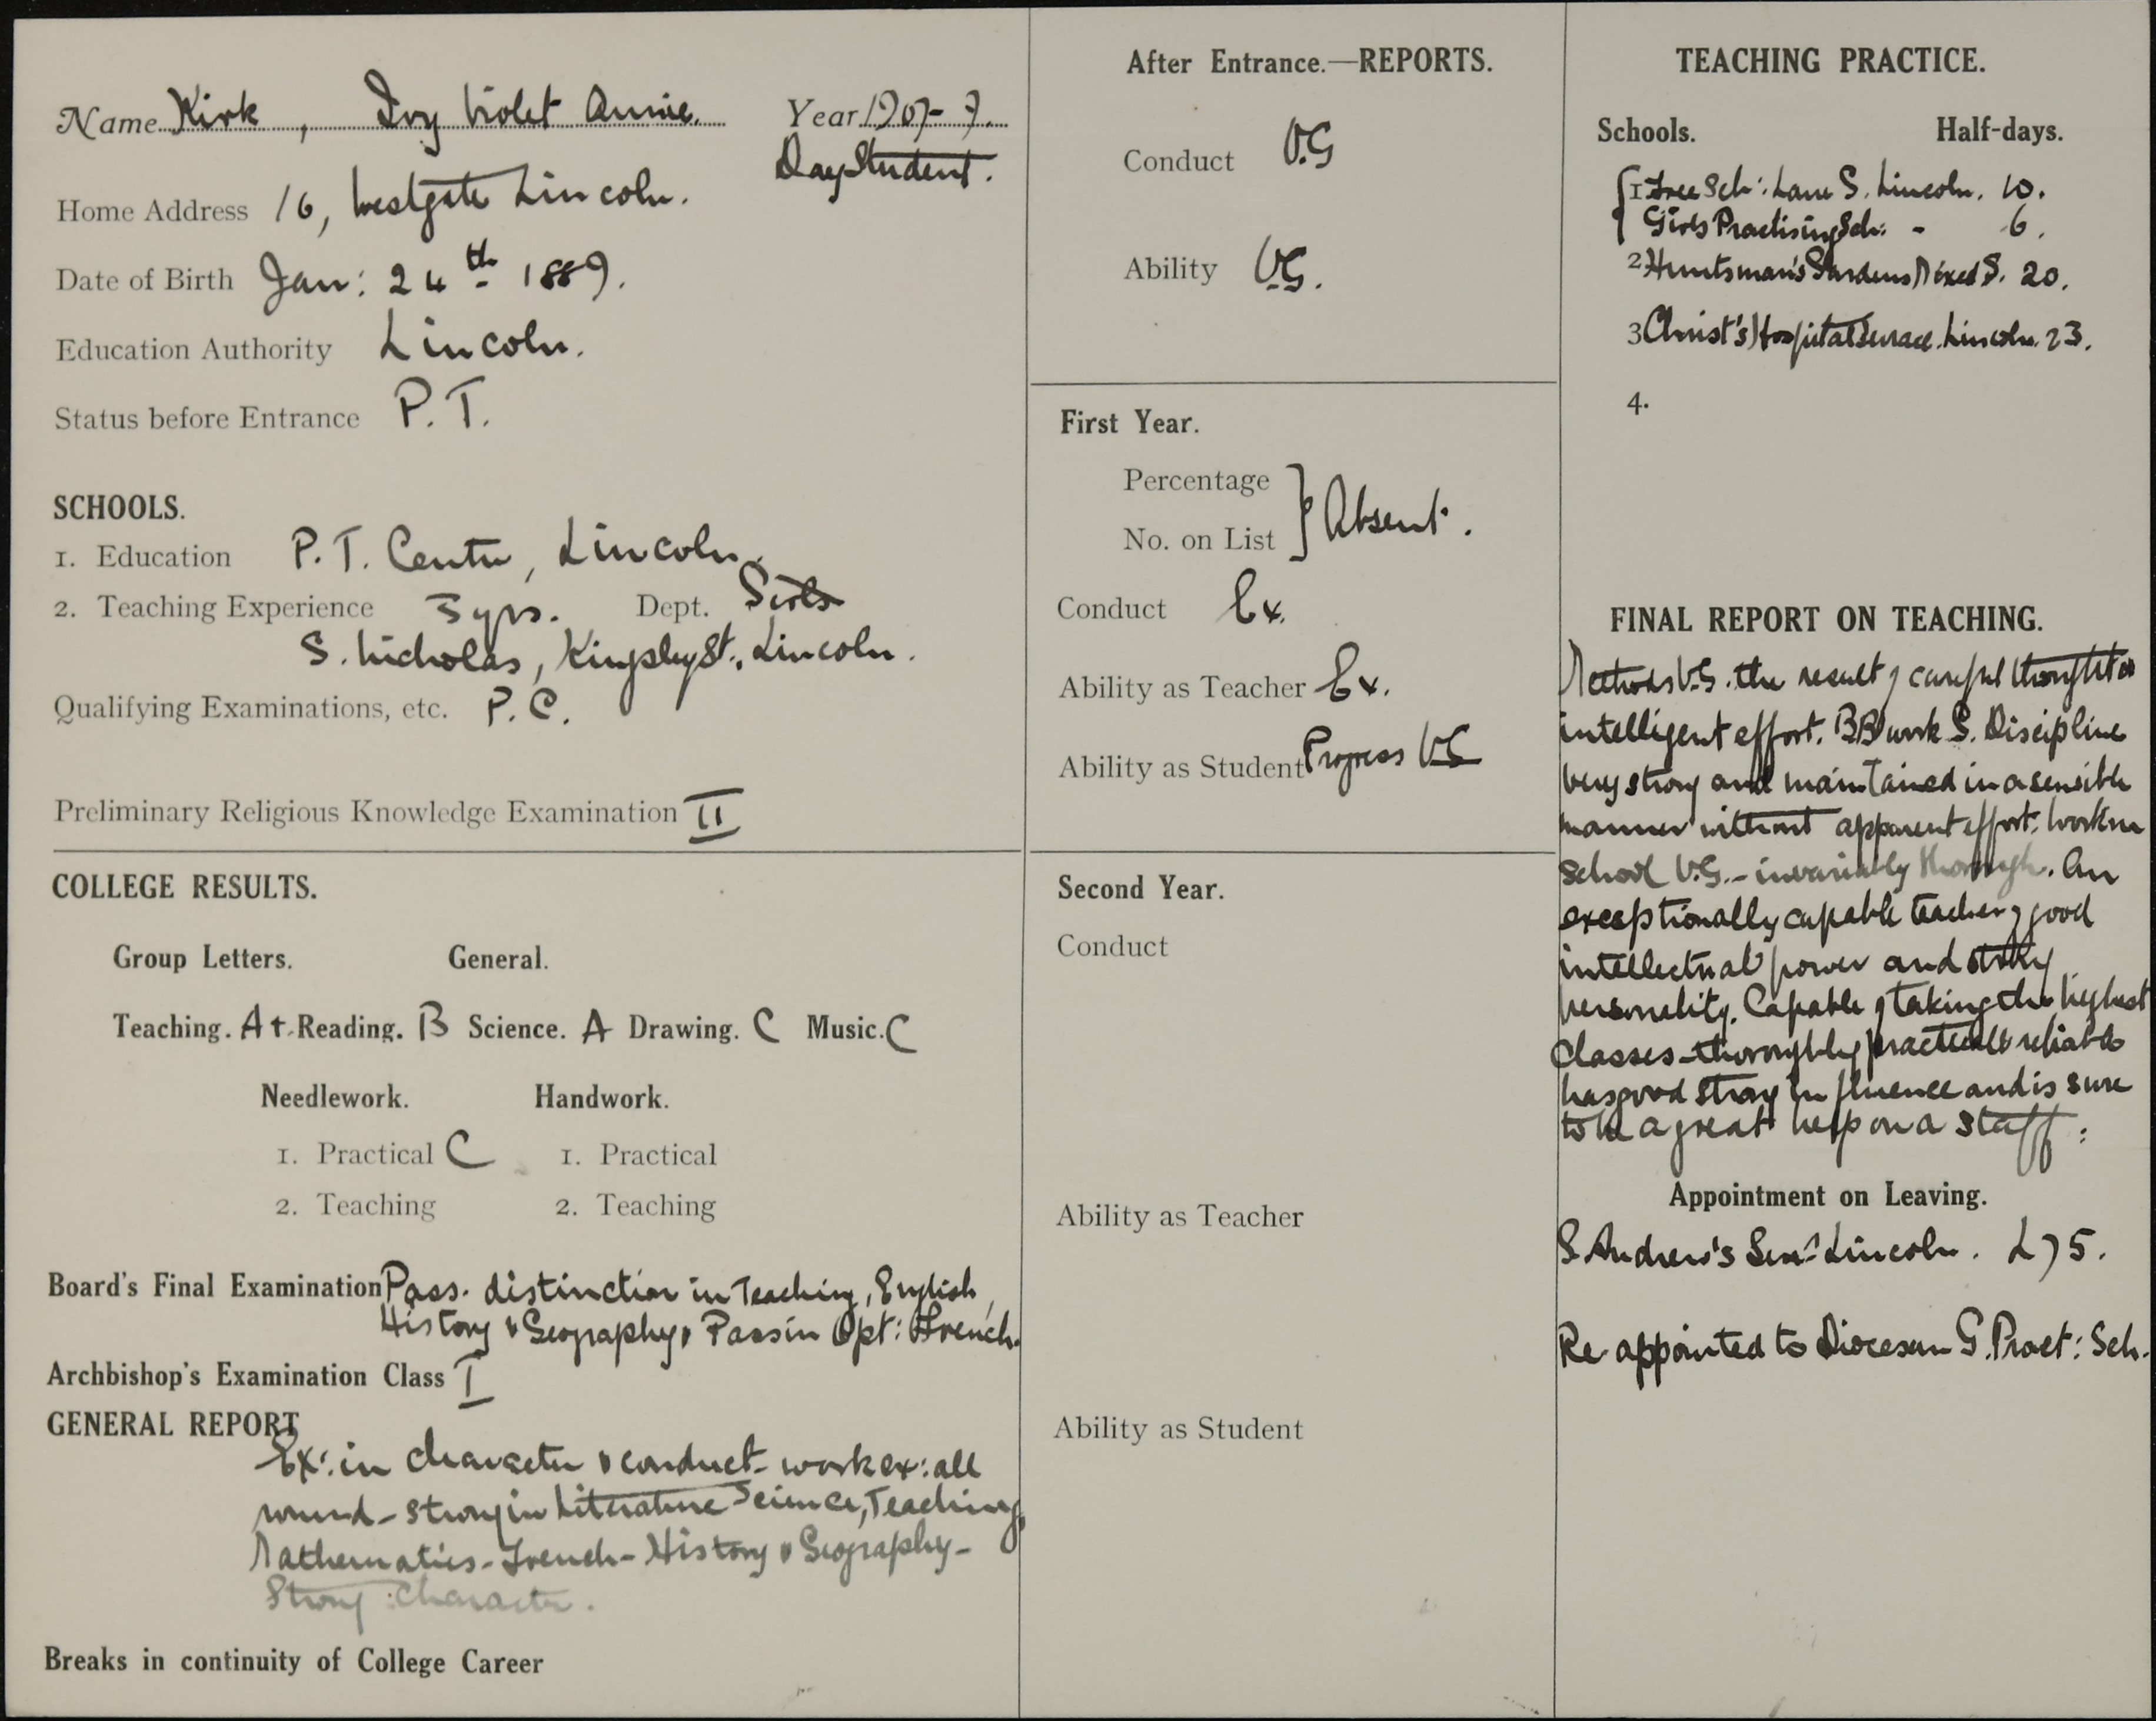 Name Kirk, Ivy Violet Annie. Year 1907-9.
Day Student.
Home Address 16, Westgate Lincoln.
Date of Birth Jan: 24th 1889.
Education Authority Lincoln.
Status before Entrance P.T.
SCHOOLS.
1. Education P.T. Centre, Lincoln.
2. Teaching Experience 3 yrs. Dept. Girls
S. Nicholas, Kingsley St., Lincoln.
Qualifying Examinations, etc. P.C.
Preliminary Religious Knowledge Examination II
COLLEGE RESULTS.
Group Letters. General.
Teaching. A+. Reading. B Science. A Drawing. C Music. C
Needlework. Handwork.
1. Practical C 1. Practical
2. Teaching 2. Teaching
Board's Final Examination Pass. distinction in Teaching, English,
History & Geography, Pass in Opt: French.
Archbishop's Examination Class I
GENERAL REPORT
Ex: in character & conduct - work ex: all
round - strong in Literature Science, Teaching,
Mathematics - French - History & Geography -
Strong character.
Breaks in continuity of College Career
After Entrance.—REPORTS.
Conduct V.G
Ability V.G.
First Year.
Percentage
No. on List } Absent.
Conduct Ex.
Ability as Teacher Ex.
Ability as Student Progress VG
Second Year.
Conduct
Ability as Teacher
Ability as Student
TEACHING PRACTICE.
Schools. Half-days.
1 Free Sch: Lane S. Lincoln. 10.
Girls Practising Sch: - 6.
2 Huntsman's Gardens Mixed S. 20.
3 Christ's Hospital Terrace. Lincoln. 23.
4.
FINAL REPORT ON TEACHING.
Methods V.G. the result of careful thought &
intelligent effort. BB work G. Discipline
very strong and maintained in a sensible
manner without apparent effort. Work in
school V.G. - invariably thorough. An
exceptionally capable teacher of good
intellectual power and strong
personality. Capable of taking the highest
classes - thoroughly practical & reliable
has good strong influence and is sure
to be a great help on a staff.
Appointment on Leaving.
S. Andrew's Lincoln. £75.
Re-appointed to Diocesan G. Pract: Sch.